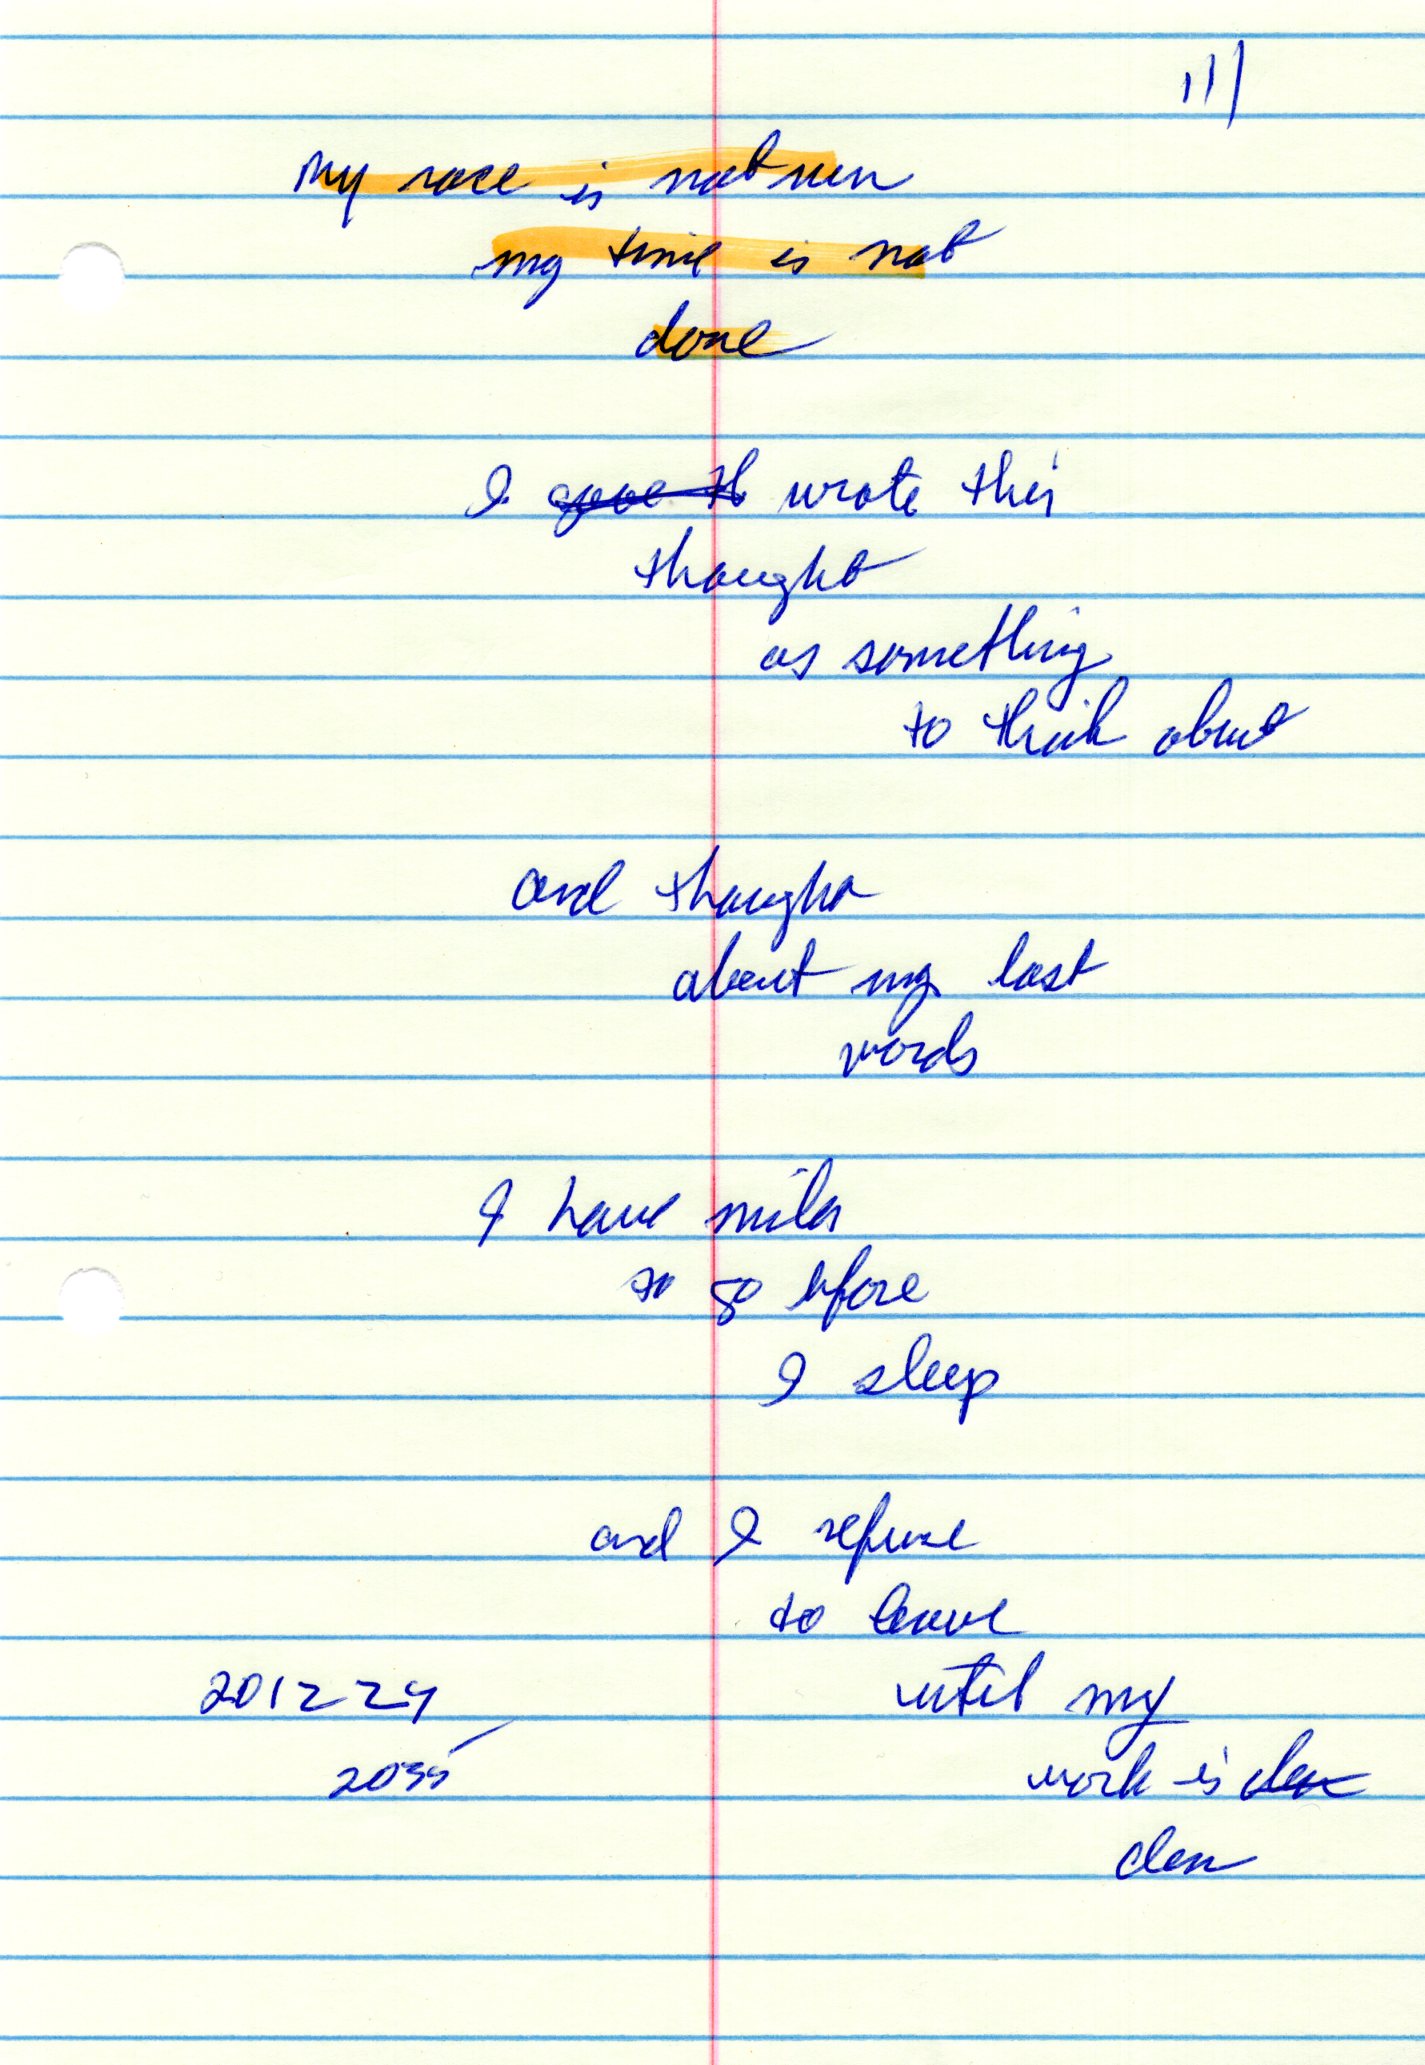 111
My race is not run
my time is not
done
I gave th wrote this
thought
as something
to think about
and thought
about my last
words
I have miles
to go before
I sleep
and I refuse
to leave
until my
201224
work is done
2035
done